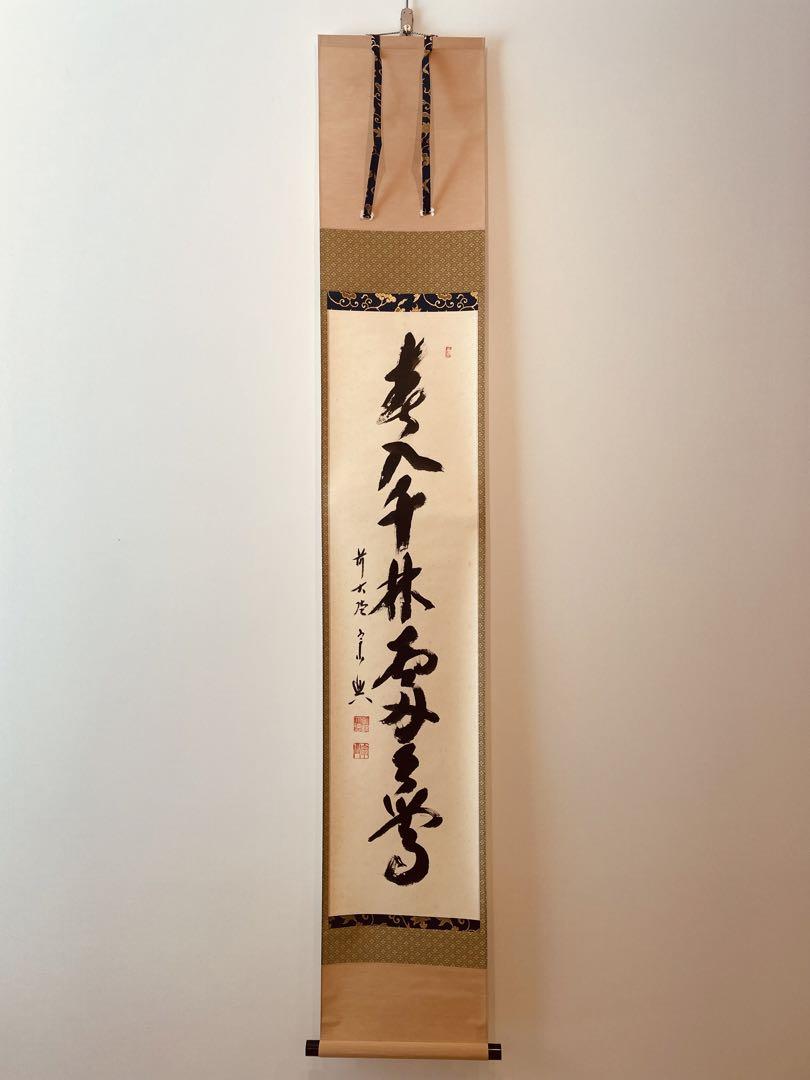 春入千林處々鶯
前大徳